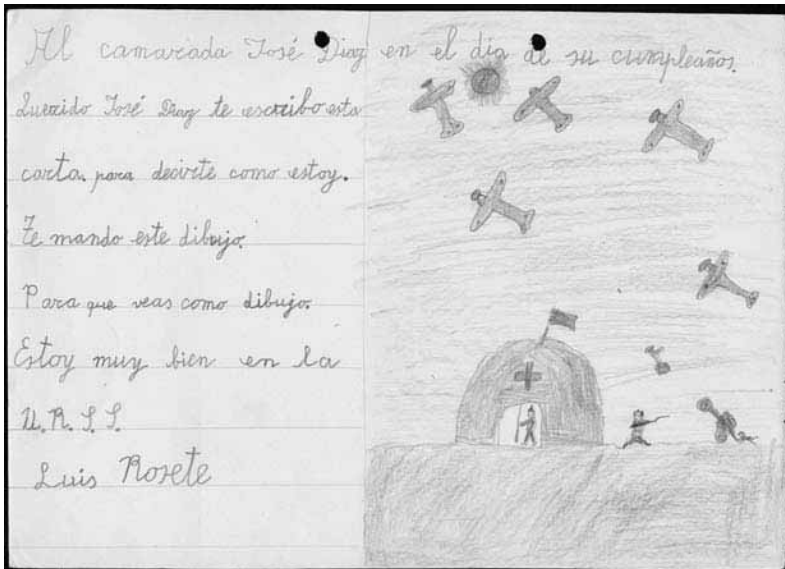 Al camarada José Diaz en el dia de su cumpleaños.
Querido José Diaz te escribo esta
carta. para decirte como estoy.
Te mando este dibujo.
Para que veas como dibujo.
Estoy muy bien en la
U.R.S.S.
Luis Rosete